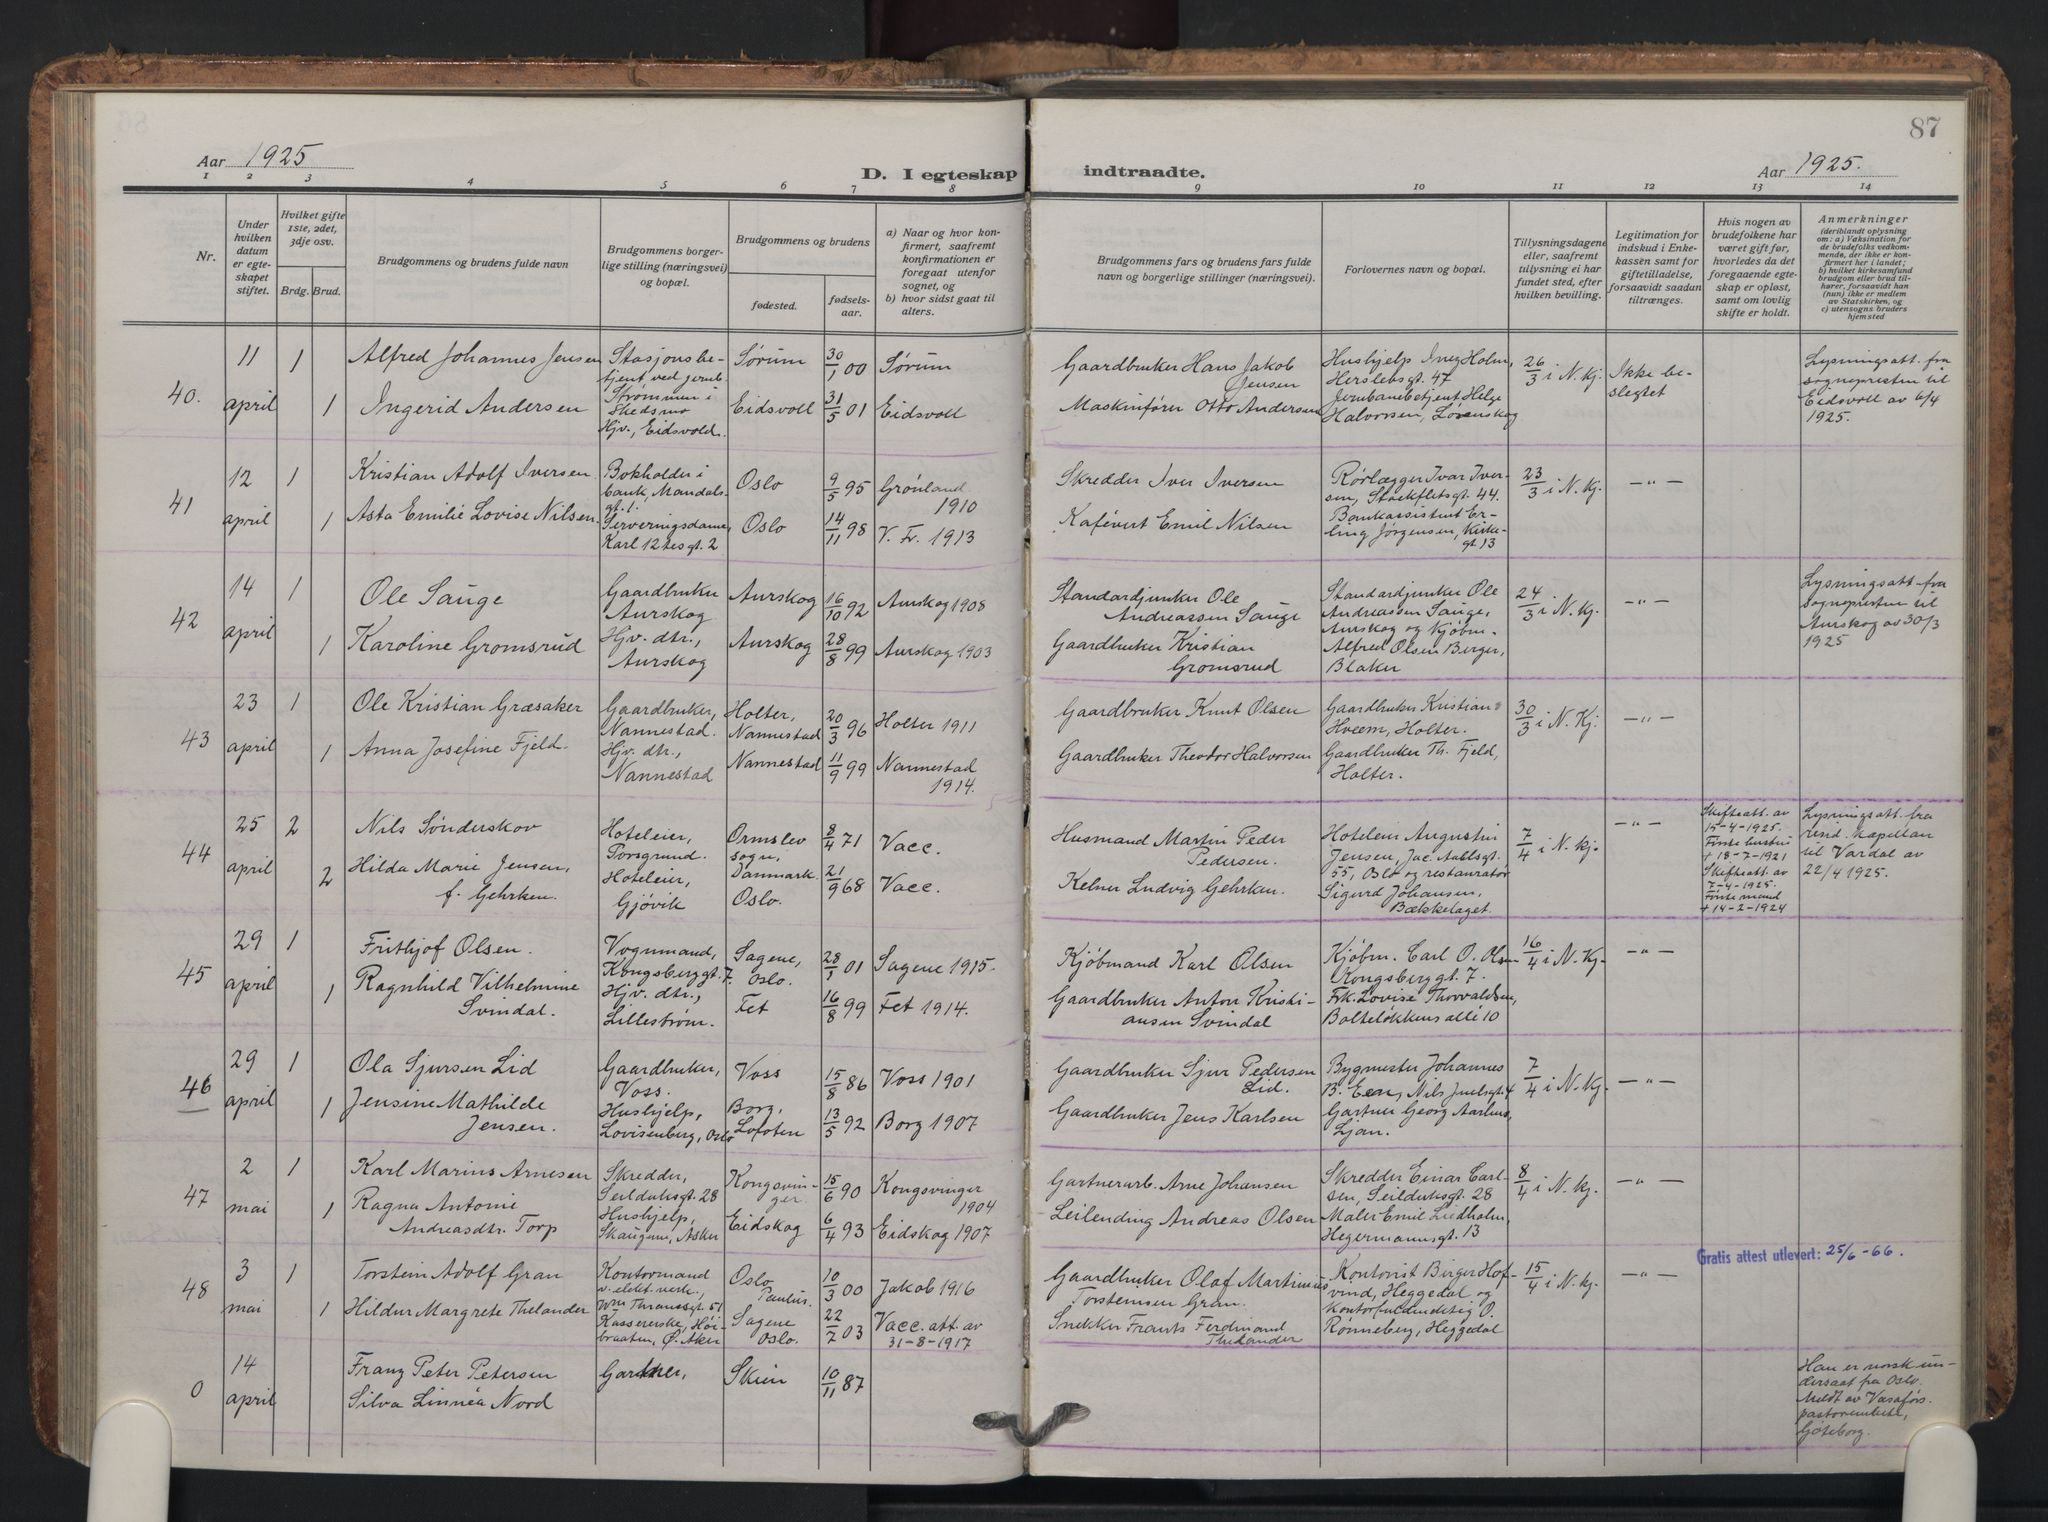 87
Aar 1925
D. I egteskap
indtraadte.
Aar 1925.
1 2 3 4 5 6 7 8
9 10 11 12 13 14
Nr.
Under hvilken datum er egteskapet stiftet.
Hvilket gifte 1ste, 2det, 3dje osv.
Brdg. Brud.
Brudgommens og brudens fulde navn
Brudgommens borgerlige stilling (næringsvei) og bopæl.
Brudgommens og brudens
fødested.
fødselsaar.
a) Naar og hvor konfirmert, saafremt konfirmationen er foregaat utenfor sognet, og
b) hvor sidst gaat til alters.
Brudgommens fars og brudens fars fulde navn og borgerlige stillinger (næringsvei).
Forlovernes navn og bopæl.
Tillysningsdagene eller, saafremt tillysning ei har fundet sted, efter hvilken bevilling.
Legitimation for indskud i Enkekassen samt for giftetilladelse, forsaavidt saadan tiltrænges.
Hvis nogen av brudefolkene har været gift før, hvorledes da det foregaaende egteskap er opløst, samt om lovlig skifte er holdt.
Anmerkninger
(deriblandt oplysning om: a) Vaksination for de brudefolks vedkommende, der ikke er konfirmert her i landet;
b) hvilket kirkesamfund brudgom eller brud tilhører, forsaavidt han (hun) ikke er medlem av Statskirken, og
c) utensogns bruders hjemsted
40.
11 april
1
Alfred Johannes Jensen
Stasjonsbetjent ved jernb. Strømmen i Skedsmo
Sørum
30/1 00
Sørum
1
Ingerid Andersen
Hjv., Eidsvold.
Eidsvoll
31/5 01
Eidsvoll
Gaardbruker Hans Jakob Jensen
Maskinfører Otto Andersen
Hushjelp Inga Holm, Herslebsgt. 47
Jernbanebetjent Helge Halvorsen, Lørenskog
26/3 i N. Kj.
Ikke beslegtet
Lysningsatt. fra sognepresten til Eidsvoll av 6/4 1925.
41
12 april
1
Kristian Adolf Iversen
Bokholder i bank, Mandalsgt. 1.
Oslo
9/5 95
Grønland 1910
1
Asta Emilie Lovise Nilsen
Serveringsdame, Karl 12tesgt. 2
Oslo
14/11 98
V. Fr. 1913
Skredder Iver Iversen
Kafévert Emil Nilsen
Rørlægger Ivar Iversen, Stockfletsgt. 44.
Bankassistent Erling Jørgensen, Kirkegt 13
23/3 i N. Kj.
— " —
42
14 april
1
Ole Sauge
Gaardbruker Aurskog
Aurskog
16/10 92
Aurskog 1908
1
Karoline Gromsrud
Hjv. dtr., Aurskog
Aurskog
28/8 99
Aurskog 1903
Standardjunker Ole Andreassen Sauge
Gaardbruker Kristian Gromsrud
Standardjunker Ole Andreassen Sauge, Aurskog og Kjøbm. Alfred Olsen Berger, Blaker
24/3 i N. Kj.
— " —
Lysningsatt. fra sognepresten til Aurskog av 30/3 1925
43
23 april
1
Ole Kristian Græsaker
Gaardbruker, Nannestad.
Holter, Nannestad
20/3 96
Holter 1911
1
Anna Josefine Fjeld.
Hjv. dtr., Nannestad
Nannestad
11/9 99
Nannestad 1914.
Gaardbruker Knut Olsen
Gaardbruker Theodor Halvorsen
Gaardbruker Kristian Hveem, Holter.
Gaardbruker Th. Fjeld, Holter.
30/3 i N. Kj.
— " —
44
25 april
2
Nils Sønderskov
Hoteleier, Porsgrund.
Ormslev sogn, Danmark.
8/4 71
Vacc.
2
Hilda Marie Jensen, f. Gehrken.
Hoteleier, Gjøvik
Oslo.
21/9 68
Vacc.
Husmand Martin Peder Pedersen.
Kelner Ludvig Gehrken.
Hoteleier Augustin Jensen, Jac. Aallsgt. 55, Oslo og restauratør Sigurd Johansen, Bækkelaget.
7/4 i N. kj.
— " —
Skifteatt. av 15-4-1925. Første hustru † 18-7-1921
Skifteatt. av 7-4-1925. Første mand † 14-2-1924
Lysningsatt. fra resid. kapellan til Vardal av 22/4 1925.
45
29 april
1
Frithjof Olsen.
Vognmand, Kongsberggt. 7.
Sagene, Oslo.
28/1 01
Sagene 1915.
1
Ragnhild Vilhelmine Svindal.
Hjv. dtr., Lillestrøm.
Fet
16/8 99
Fet 1914.
Kjøbmand Karl Olsen
Gaardbruker Anton Kristiansen Svindal
Kjøbm. Carl O. Olsen Kongsberggt. 7.
Frk. Lovise Thorvaldsen, Bolteløkkens allé 10
16/4 i N. Kj.
— " —
46
29 april
1
Ola Sjursen Lid
Gaardbruker, Voss.
Voss
15/8 86
Voss 1901
1
Jensine Mathilde Jensen.
Hushjelp, Lovisenberg, Oslo
Borg, Lofoten
13/5 92
Borg 1907
Gaardbruker Sjur Pedersen Lid.
Gaardbruker Jens Karlsen
Bygmester Johannes B. Een, Nils Juelsgt. 4
Gartner Georg Aarhus, Ljan.
7/4 i N. Kj.
— " —
47
2 mai
1
Karl Marius Arnesen
Skredder, Seilduksgt. 28
Kongsvinger.
15/6 90
Kongsvinger 1904
1
Ragna Antonie Andreasdtr. Torp
Hushjelp, Skaugum, Asker
Eidskog
6/4 93
Eidskog 1907
Gartnerarb. Arne Johansen
Leilending Andreas Olsen
Skredder Einar Carlsen, Seilduksgt. 28
Maler Emil Lindholm, Hegermannsgt. 13
8/4 i N. kj.
— " —
Gratis attest utlevert: 25/6-66.
48
3 mai
1
Torstein Adolf Gran
Kontormand v. elekt. verk., Wm Thranesgt. 51
Oslo Paulus.
10/3 00
Jakob 1916
1
Hildur Margrete Thelander
Kassererske, Høibraaten, Ø. Aker
Sagene Oslo.
22/7 03
Vacc. att. av 31-8-1917
Gaardbruker Olaf Martinius Torstensen Gran.
Snekker Frants Ferdinand Thelander
Kontorist Birger Hofvind, Heggedal og kontorfuldmektig O. Rønneberg, Heggedal
15/4 i N. kj.
— " —
0
14 april
Franz Peter Petersen
Gartner,
Skien
10/11 87
Silva Linnéa Nord
Han er norsk undersaat fra Oslo. Meldt av Vasaförs. pastorembete, Göteborg.